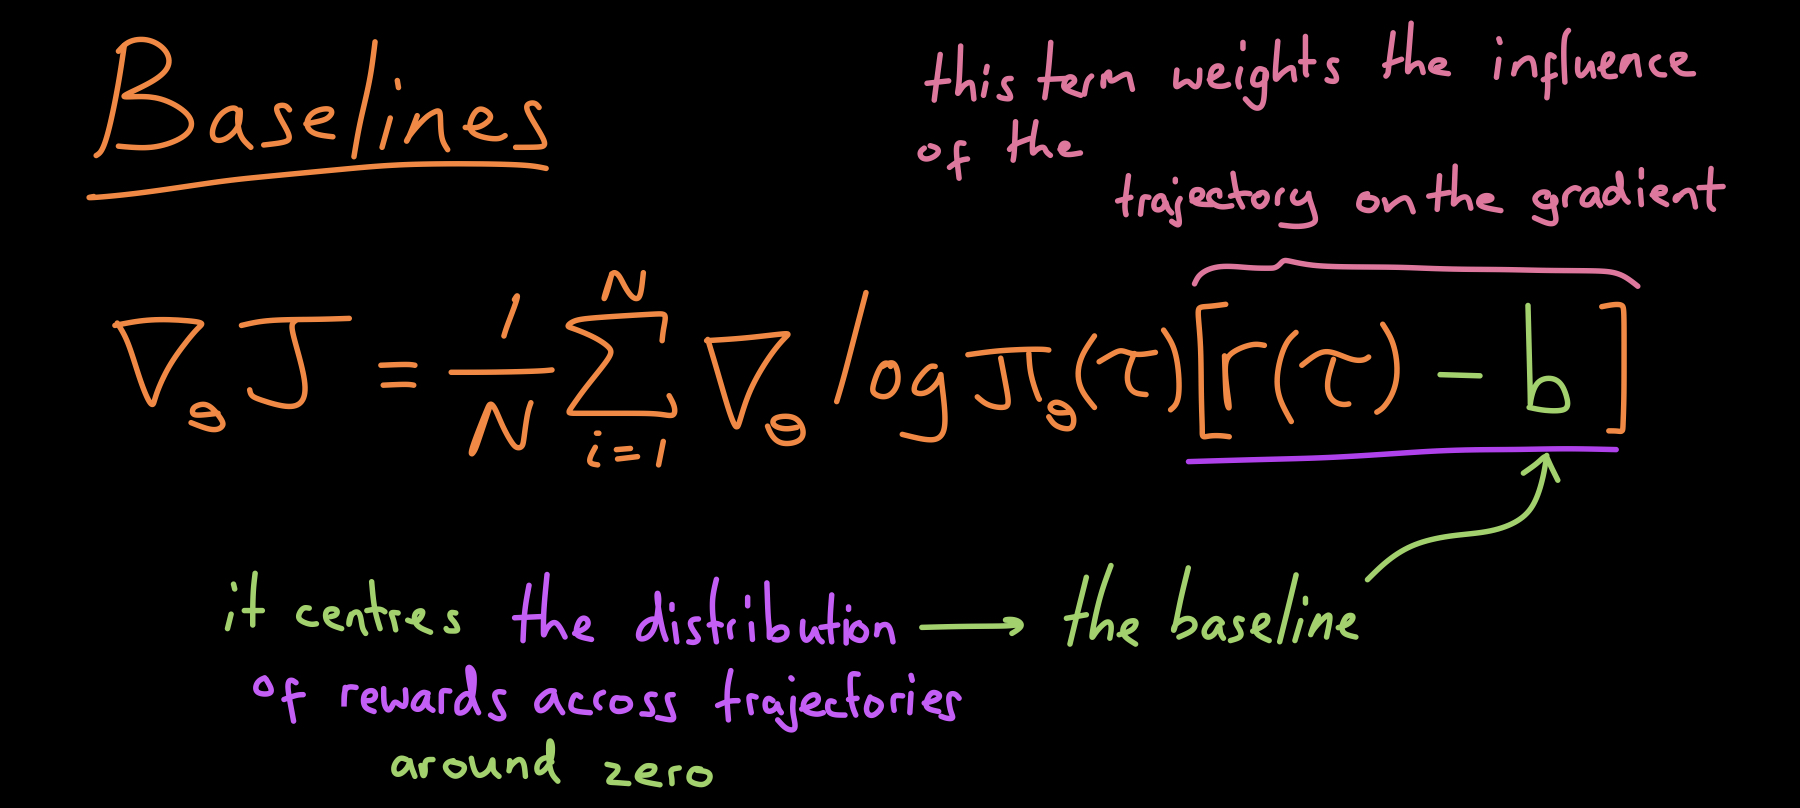 Baselines
this term weights the influence
of the
trajectory on the gradient
∇_θ J = 1/N ∑_{i=1}^{N} ∇_θ log π_θ(τ)[r(τ) - b]
it centres the distribution → the baseline
of rewards across trajectories
around zero